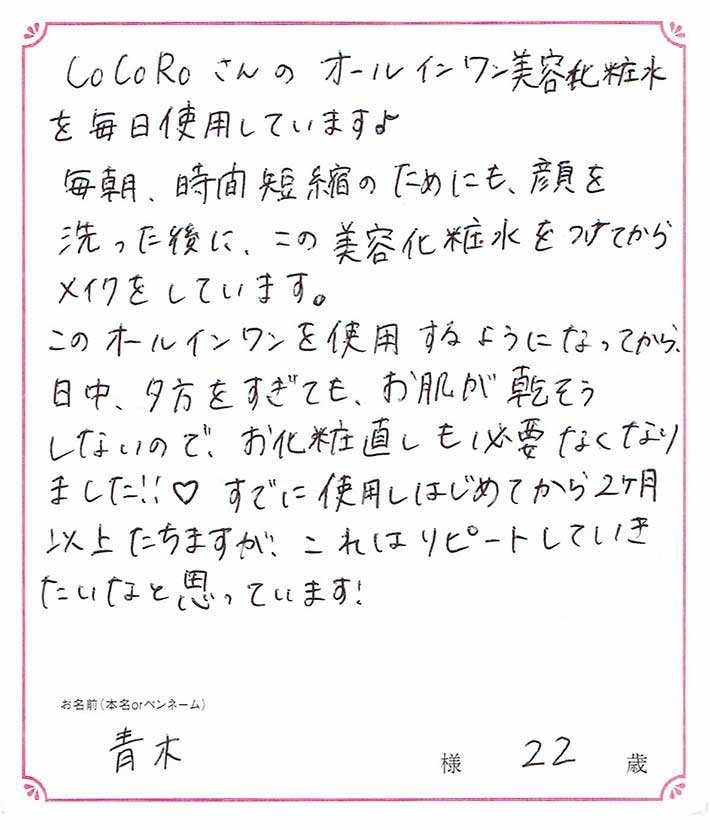 CoCoRoさんの オールインワン美容化粧水
を毎日使用しています♪
毎朝、時間短縮のためにも、顔を
洗った後に、この美容化粧水をつけてから
メイクをしています。
このオールインワンを使用するようになってから、
日中、夕方をすぎても、お肌が乾そう
しないので、お化粧直しも必要なくなり
ました!!♡ すでに使用しはじめてから2ヶ月
以上たちますが、これはリピートしていき
たいなと思っています!
お名前(本名orペンネーム)
青木 様 22 歳